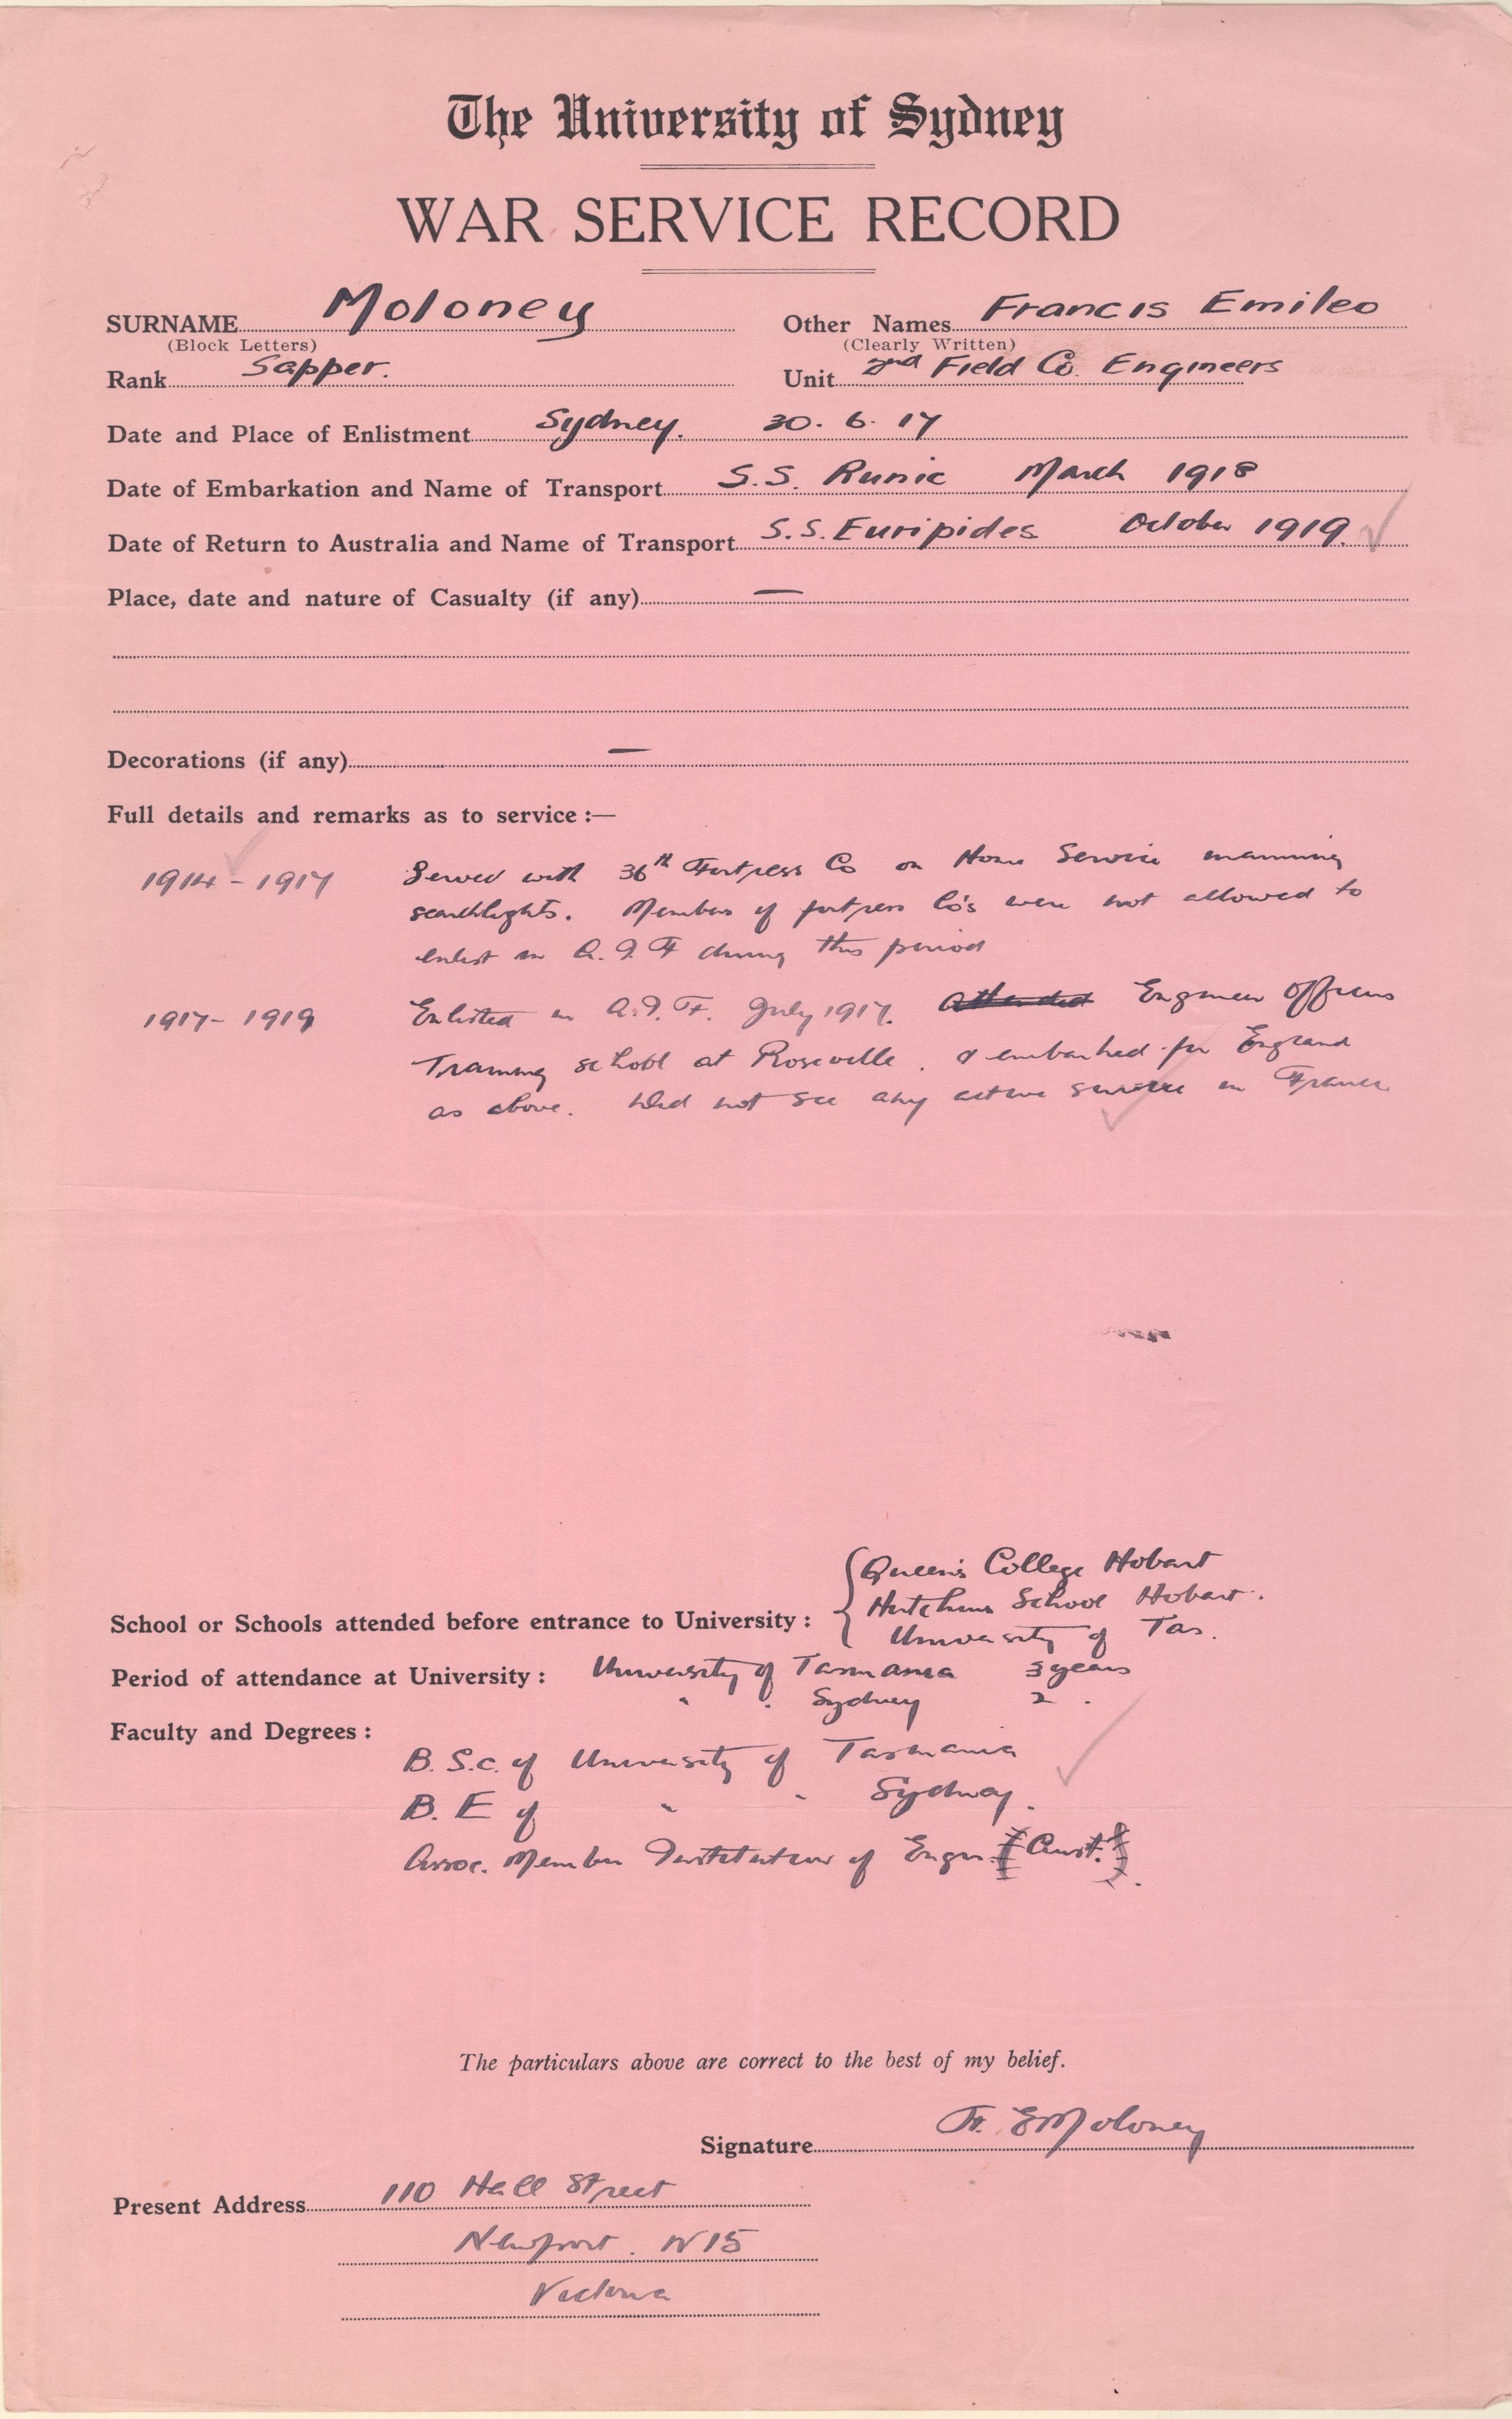 The University of Sydney
WAR SERVICE RECORD
SURNAME Moloney Other Names Francis Emileo
(Block Letters) (Clearly Written)
Rank Sapper. Unit 2nd Field Co. Engineers
Date and Place of Enlistment Sydney. 30. 6. 17
Date of Embarkation and Name of Transport S.S. Runic March 1918
Date of Return to Australia and Name of Transport S.S. Euripides October 1919.
Place, date and nature of Casualty (if any) —
Decorations (if any) —
Full details and remarks as to service :—
1914 - 1917 Served with 36th Fortress Co on Home Service manning
searchlights. Members of fortress Co's were not allowed to
enlist in A.I.F during this period
1917 - 1919 Enlisted in A.I.F. July 1917. Attended Engineer Officers
Training school at Roseville. & embarked for England
as above. Did not see any active service in France
Queen's College Hobart
Hutchins School Hobart.
School or Schools attended before entrance to University :
University of Tas.
Period of attendance at University : University of Tasmania 3 years
" " Sydney 2 "
Faculty and Degrees :
B.S.c. of University of Tasmania
B.E of " " Sydney.
Assoc. Member Institution of Engrs. (Aust.).
The particulars above are correct to the best of my belief.
Signature Fr. E Moloney
Present Address 110 Hall Street
Newport. W15
Victoria